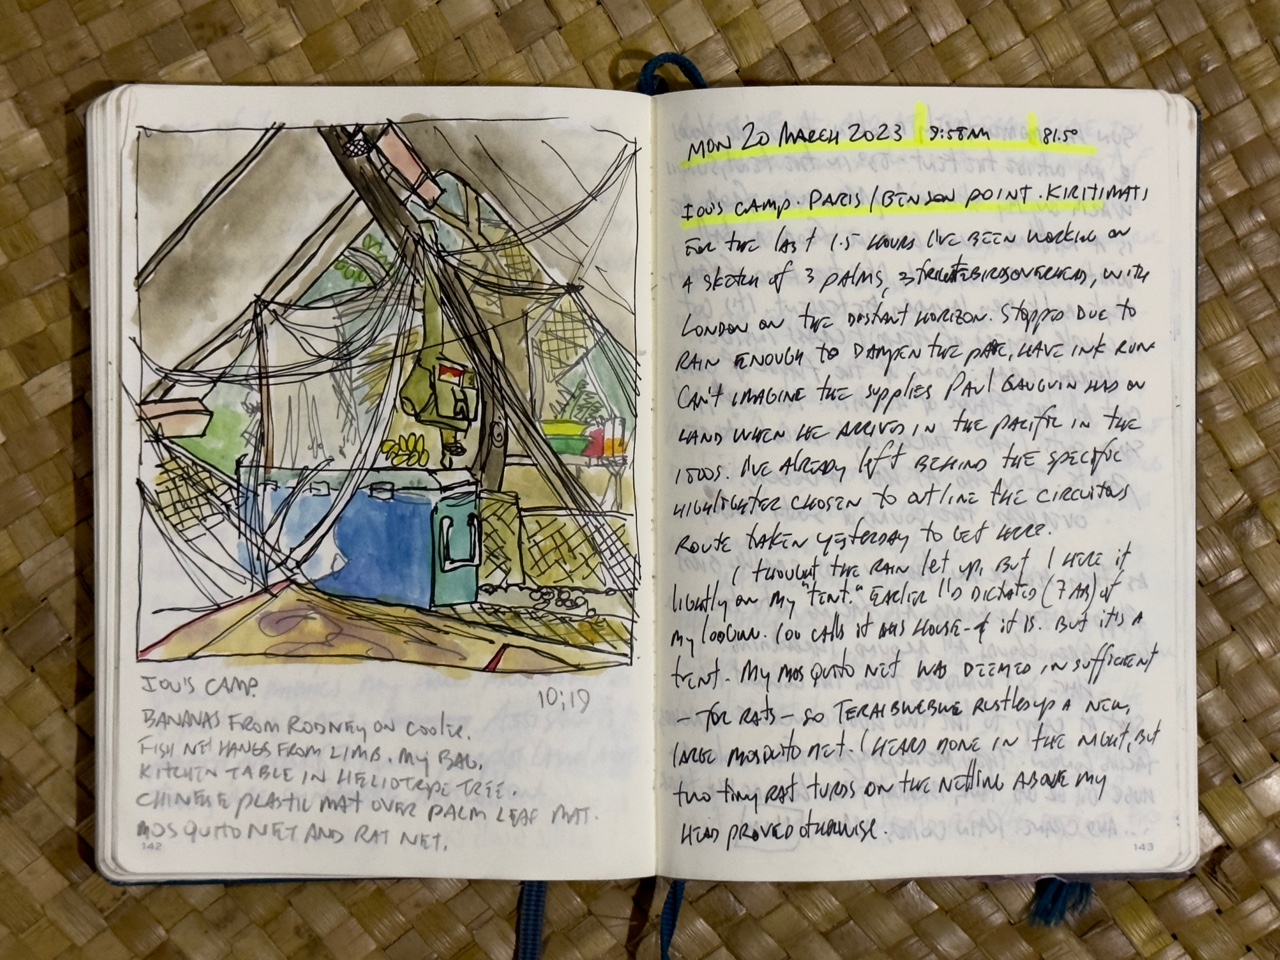 IOU'S CAMP.
10:19
BANANAS FROM RODNEY ON COOLER.
FISH NET HANGS FROM LIMB. MY BAG.
KITCHEN TABLE IN HELIOTROPE TREE.
CHINESE PLASTIC MAT OVER PALM LEAF MAT.
MOSQUITO NET AND RAT NET.
142
MON 20 MARCH 2023 | 9:58AM | 81.5°
IOU'S CAMP. PARIS / BENSON POINT. KIRITIMATI
FOR THE LAST 1.5 HOURS I'VE BEEN WORKING ON
A SKETCH OF 3 PALMS, 3 FRIGATEBIRDS OVERHEAD, WITH
LONDON ON THE DISTANT HORIZON. STOPPED DUE TO
RAIN ENOUGH TO DAMPEN THE PAGE, HAVE INK RUN.
CAN'T IMAGINE THE SUPPLIES PAUL GAUGUIN HAD ON
HAND WHEN HE ARRIVED IN THE PACIFIC IN THE
1800S. I'VE ALREADY LEFT BEHIND THE SPECIFIC
HIGHLIGHTER CHOSEN TO OUTLINE THE CIRCUITOUS
ROUTE TAKEN YESTERDAY TO GET HERE.
I THOUGHT THE RAIN LET UP, BUT I HERE IT
LIGHTLY ON MY "TENT." EARLIER I'D DICTATED (7 AB) OF
MY LOCATION. IOU CALLS IT HIS HOUSE - & IT IS. BUT IT'S A
TENT. MY MOSQUITO NET WAS DEEMED INSUFFICIENT
- FOR RATS - SO TERAABWEBWE RUSTLED UP A NEW,
LARGE MOSQUITO NET. I HEARD NONE IN THE NIGHT, BUT
TWO TINY RAT TURDS ON THE NETTING ABOVE MY
HEAD PROVED OTHERWISE.
143